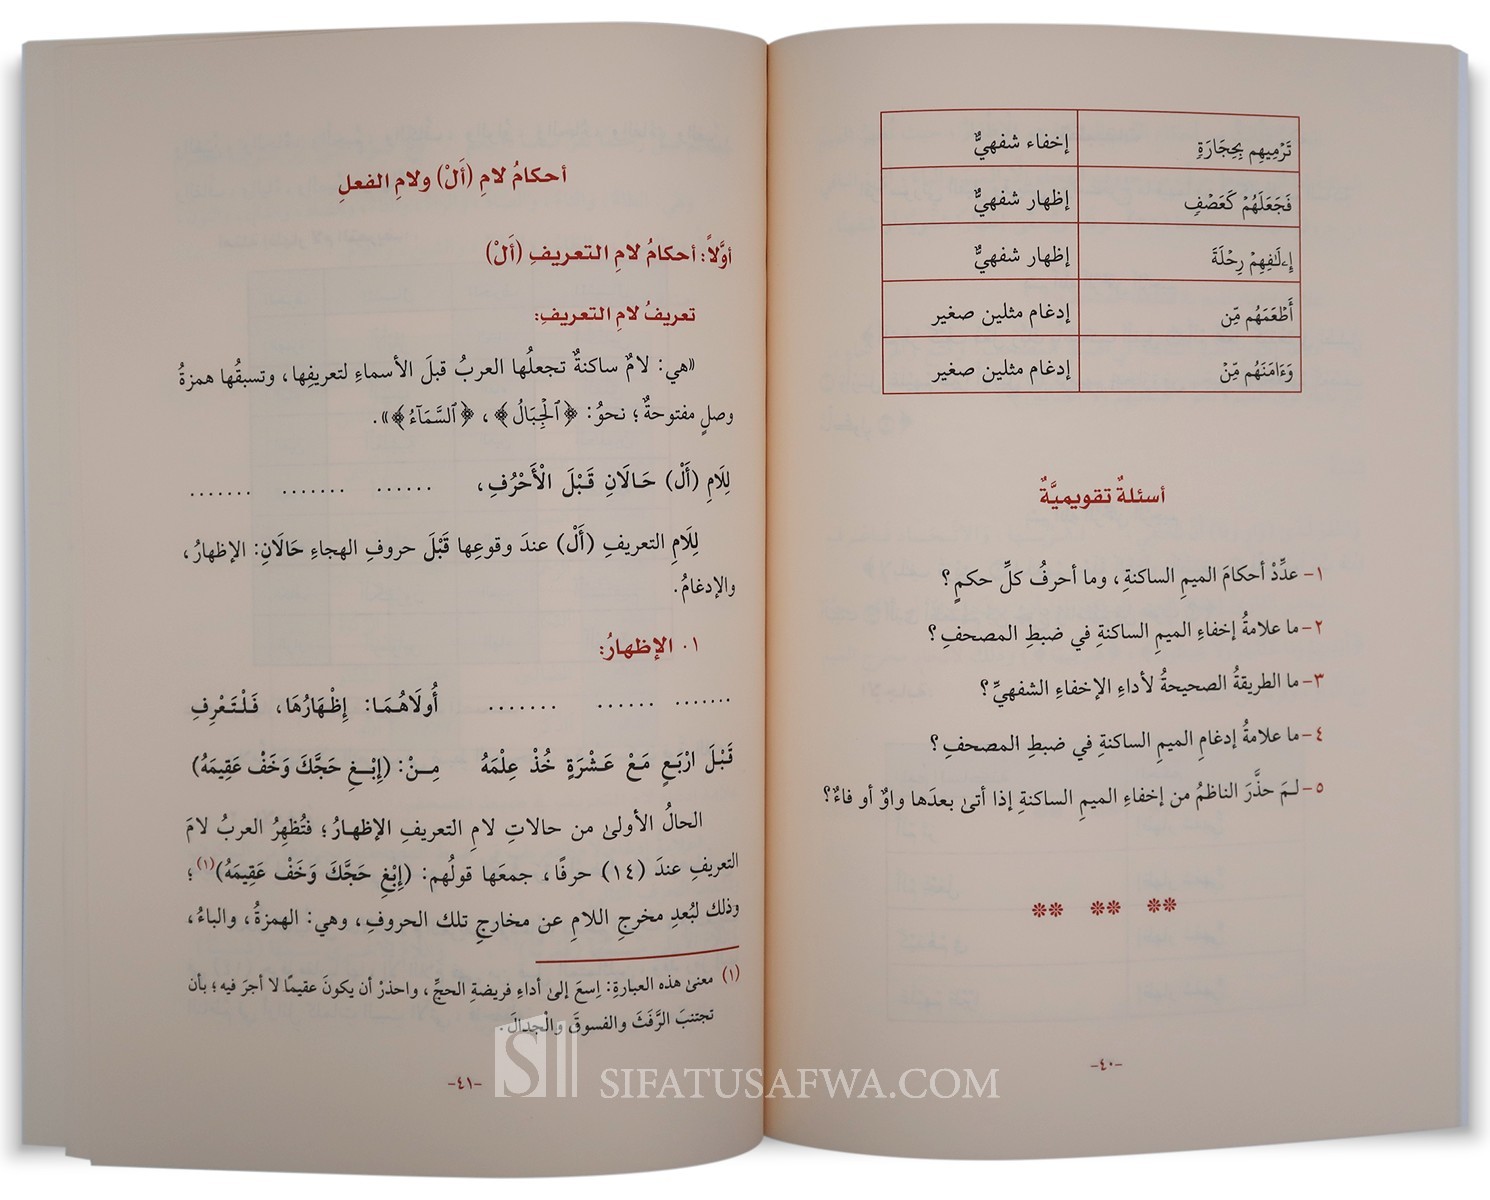 تَرۡمِيهِم بِحِجَارَةٖ إخفاء شفهيٌّ
فَجَعَلَهُمۡ كَعَصۡفٖ إظهار شفهيٌّ
إِۦلَٰفِهِمۡ رِحۡلَةَ إظهار شفهيٌّ
أَطۡعَمَهُم مِّن إدغام مثلين صغير
وَءَامَنَهُم مِّنۡ إدغام مثلين صغير
أسئلةٌ تقويميَّةٌ
١- عدِّدْ أحكامَ الميمِ الساكنةِ، وما أحرفُ كلِّ حكمٍ؟
٢- ما علامةُ إخفاءِ الميمِ الساكنةِ في ضبطِ المصحفِ؟
٣- ما الطريقةُ الصحيحةُ لأداءِ الإخفاءِ الشفهيِّ؟
٤- ما علامةُ إدغامِ الميمِ الساكنةِ في ضبطِ المصحفِ؟
٥- لـمَ حذَّرَ الناظمُ من إخفاءِ الميمِ الساكنةِ إذا أتىٰ بعدَها واوٌ أو فاءٌ؟
** ** **
-٤٠-
أحكامُ لامِ (أَلْ) ولامِ الفعلِ
أوَّلاً: أحكامُ لامِ التعريفِ (أَلْ)
تعريفُ لامِ التعريفِ:
«هي: لامٌ ساكنةٌ تجعلُها العربُ قبلَ الأسماءِ لتعريفِها، وتسبقُها همزةُ
وصلٍ مفتوحةٌ؛ نحوُ: ﴿ٱلۡجِبَالُ﴾، ﴿ٱلسَّمَآءُ﴾».
لِلَامِ (أَلْ) حَالَانِ قَبْلَ الْأَحْرُفِ، ...... ....... .......
لِلَامِ التعريفِ (أَلْ) عندَ وقوعِها قَبْلَ حروفِ الهجاءِ حَالَانِ: الإظهارُ،
والإدغامُ.
١. الإظهارُ:
....... ...... ....... أُولَاهُمَـا: إِظْهَارُهَا، فَلْتَعْرِفِ
قَبْلَ ارْبَعٍ مَعْ عَشْرَةٍ خُذْ عِلْمَهُ مِـنْ: (إِبْـغِ حَجَّكَ وَخَفْ عَقِيمَهُ)
الحالُ الأولىٰ من حالاتِ لامِ التعريفِ الإظهـارُ؛ فتُظهِرُ العربُ لامَ
التعريفِ عندَ (١٤) حرفًا، جمعَها قولُهم: (إِبْغِ حَجَّكَ وَخَفْ عَقِيمَهُ)(١)؛
وذلك لبُعدِ مخرجِ اللامِ عن مخارجِ تلك الحروفِ، وهي: الهمزةُ، والباءُ،
(١) معنىٰ هذه العبارةِ: اِسعَ إلىٰ أداءِ فريضةِ الحجِّ، واحذرْ أن يكونَ عقيمًا لا أجرَ فيه؛ بأن
تجتنبَ الرَّفَثَ والفسوقَ والْجِدالَ.
-٤١-
SIFATUSAFWA.COM